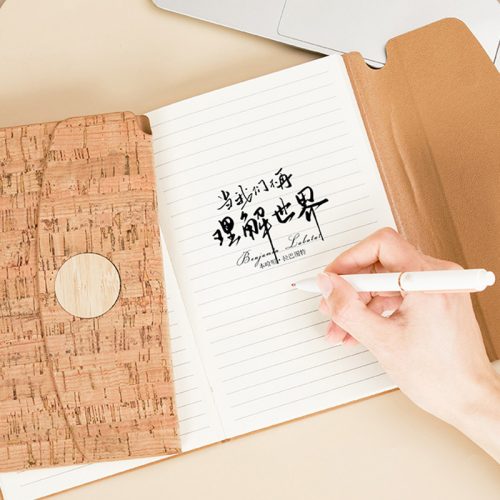 当我们不再
理解世界
Benjamín Labatut
本哈明·拉巴图特